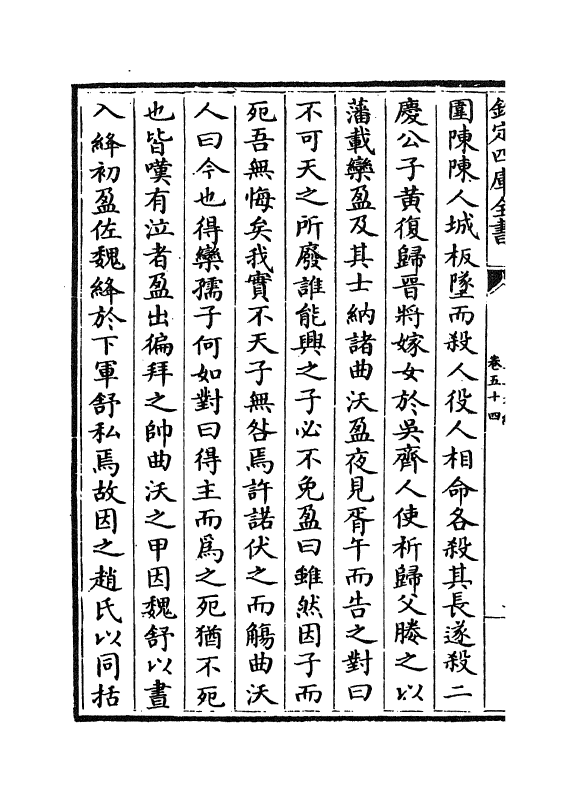 欽定四庫全書
卷五十四
圍陳陳人城板墜而殺人役人相命各殺其長遂殺二
慶公子黄復歸晉將嫁女於吳齊人使析歸父媵之以
藩載欒盈及其士納諸曲沃盈夜見胥午而告之對曰
不可天之所廢誰能興之子必不免盈曰雖然因子而
死吾無悔矣我實不天子無咎焉許諾伏之而觴曲沃
人曰今也得欒孺子何如對曰得主而爲之死猶不死
也皆嘆有泣者盈出徧拜之帥曲沃之甲因魏舒以晝
入絳初盈佐魏絳於下軍舒私焉故因之趙氏以同括